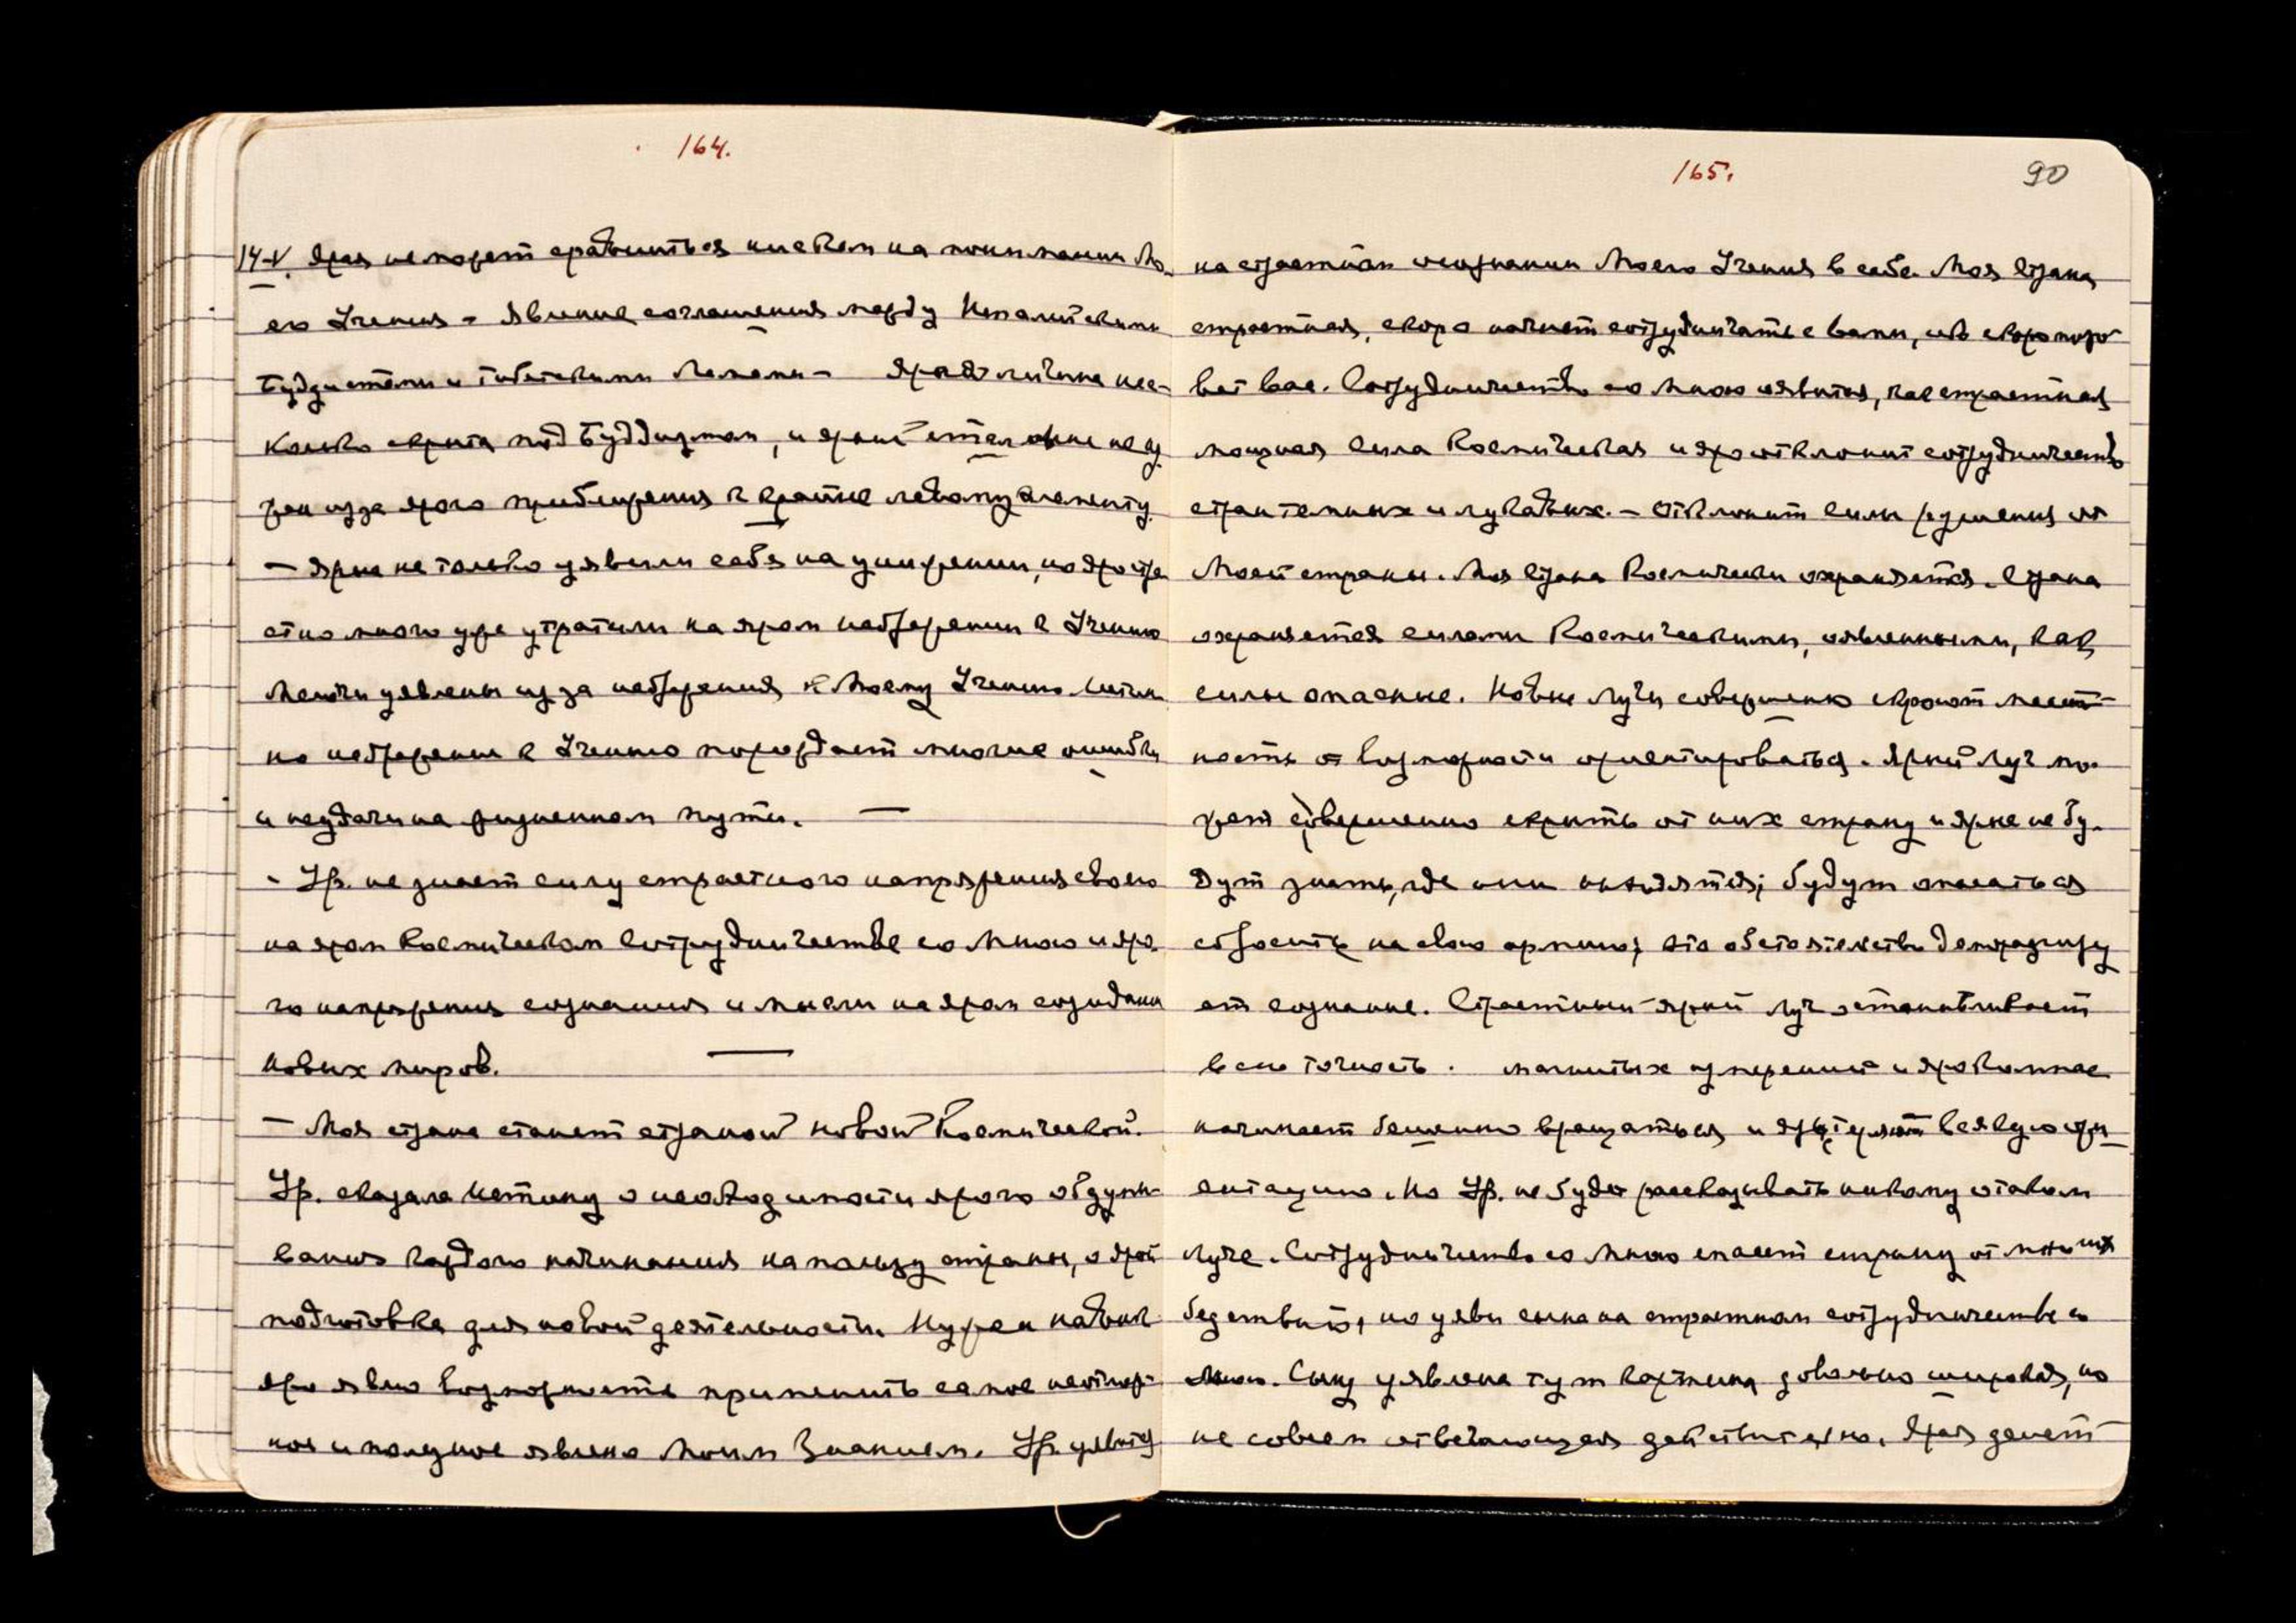 164.
14-V. Ярая не может сравниться ни с кем на понимании Мо-
его Учения - Явление соглашения между Непалийскими
Буддистами и Тибетскими Ламами - Ярая личина нес-
колько скрыта под Буддизмом, и яркий стал не ну
жен из за ярого приближения к крайне левому элементу
- Ярые не только уявили себя на унижении, но яро стра
стно много уже утратили на яром небрежении к Учению
Мощи уявлены из за небрежения к Моему Учению. Истин
но небрежение к Учению порождает многие ошибки
и неудачи на жизненном пути. —
- Ур. не знает силу страстного напряжения своего
на яром Космическом Сотрудничестве со Мною и яро
го напряжения сознания и мысли на яром созидании
новых миров. —
- Моя страна станет страной новой Космической.
Ур. сказала о необходимости ярого обдумы-
вания каждого начинания на пользу страны, о ярой
подготовке для новой деятельности. Нужен навык
яро явно возможность применить самое неотлож-
ное и полезное явлено Моим Знанием. Ур. уявится
165.
90
на страстном осознании Моего Учения в себе. Моя Страна
страстная, скоро начнет сотрудничать с вами, она скоро позо-
вет вас. Сотрудничество со Мною явится, как страстная
мощная сила Космическая и яро отклонит сотрудничество
странных и лукавых. - Отклонит силы разрушения от
Моей страны. Моя Страна Космически охраняется. Страна
охраняется силами Космическими, явленными, как
силы опасные. Новые Лучи совершенно скроют мест-
ность от возможности ориентироваться. Яркий Луч мо-
жет совершенно скрыть от них страну и ярые не бу-
дут знать, где они находятся; будут опасаться
сбросить на свою армию; это обстоятельство деморализу
ет сознание. Страстный ярый Луч останавливает
всю точность. магнитных измерений и яро компас
начинает бешенно вращаться и яро теряет всякую ори
ентацию. Но Ур. не будет рассказывать никому о таком
Луче. Сотрудничество со Мною спасет страну от многих
бедствий, но уяви сына на страстном сотрудничестве со
Мною. Сыну уявлена тут картина довольно широкая, но
не совсем отвечающая действительно. Ярая делает